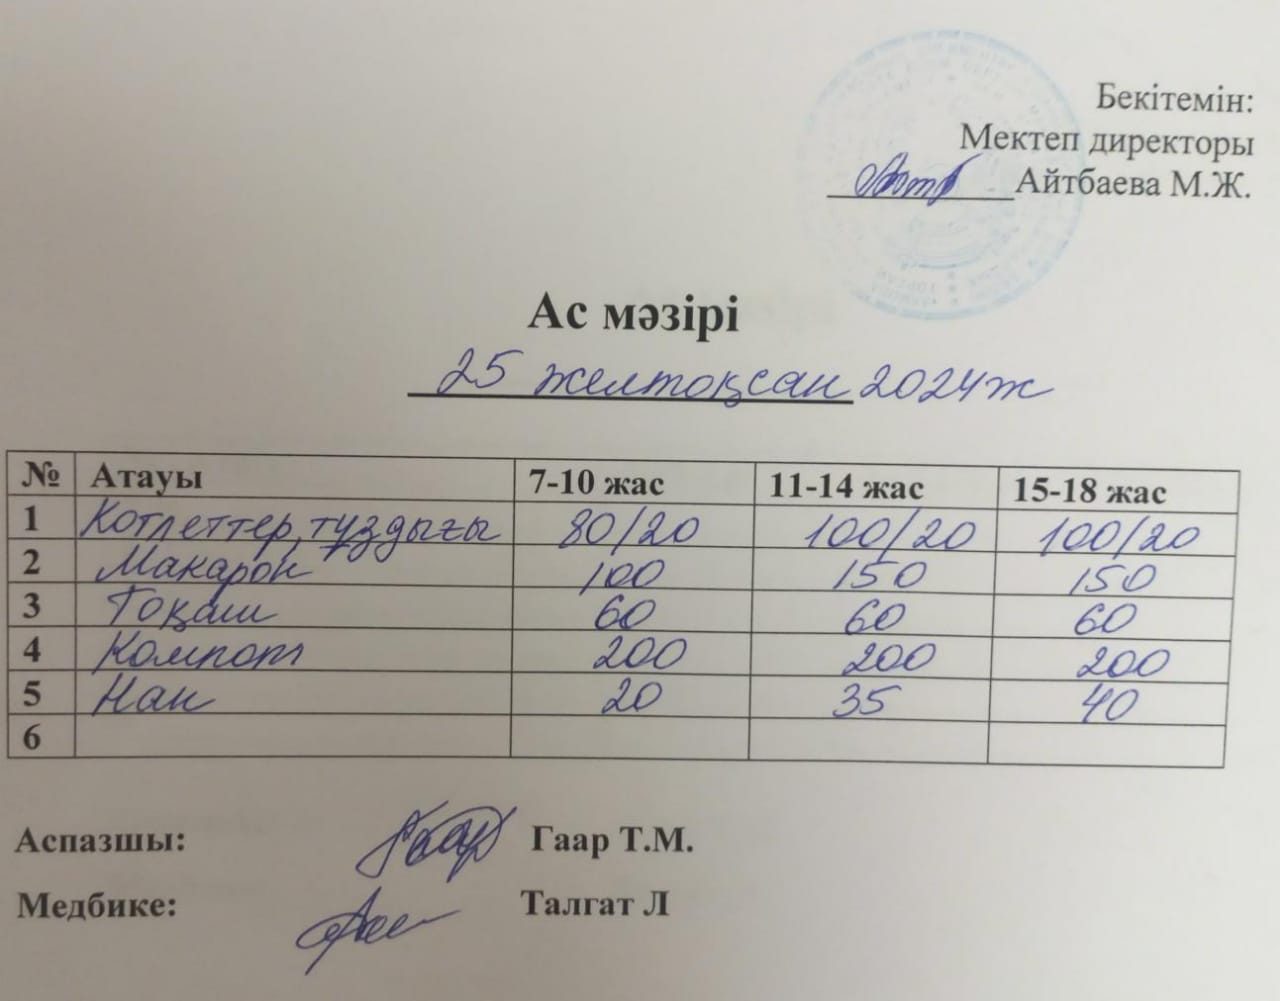 Бекітемін:
Мектеп директоры
Айтбаева М.Ж.
Ас мәзірі
25 желтоқсан 2024ж
№ Атауы 7-10 жас 11-14 жас 15-18 жас
1 Котлеттер, тұздығы 80/20 100/20 100/20
2 Макарон 100 150 150
3 Тоқаш 60 60 60
4 Компот 200 200 200
5 Нан 20 35 40
6
Аспазшы: Гаар Т.М.
Медбике: Талгат Л